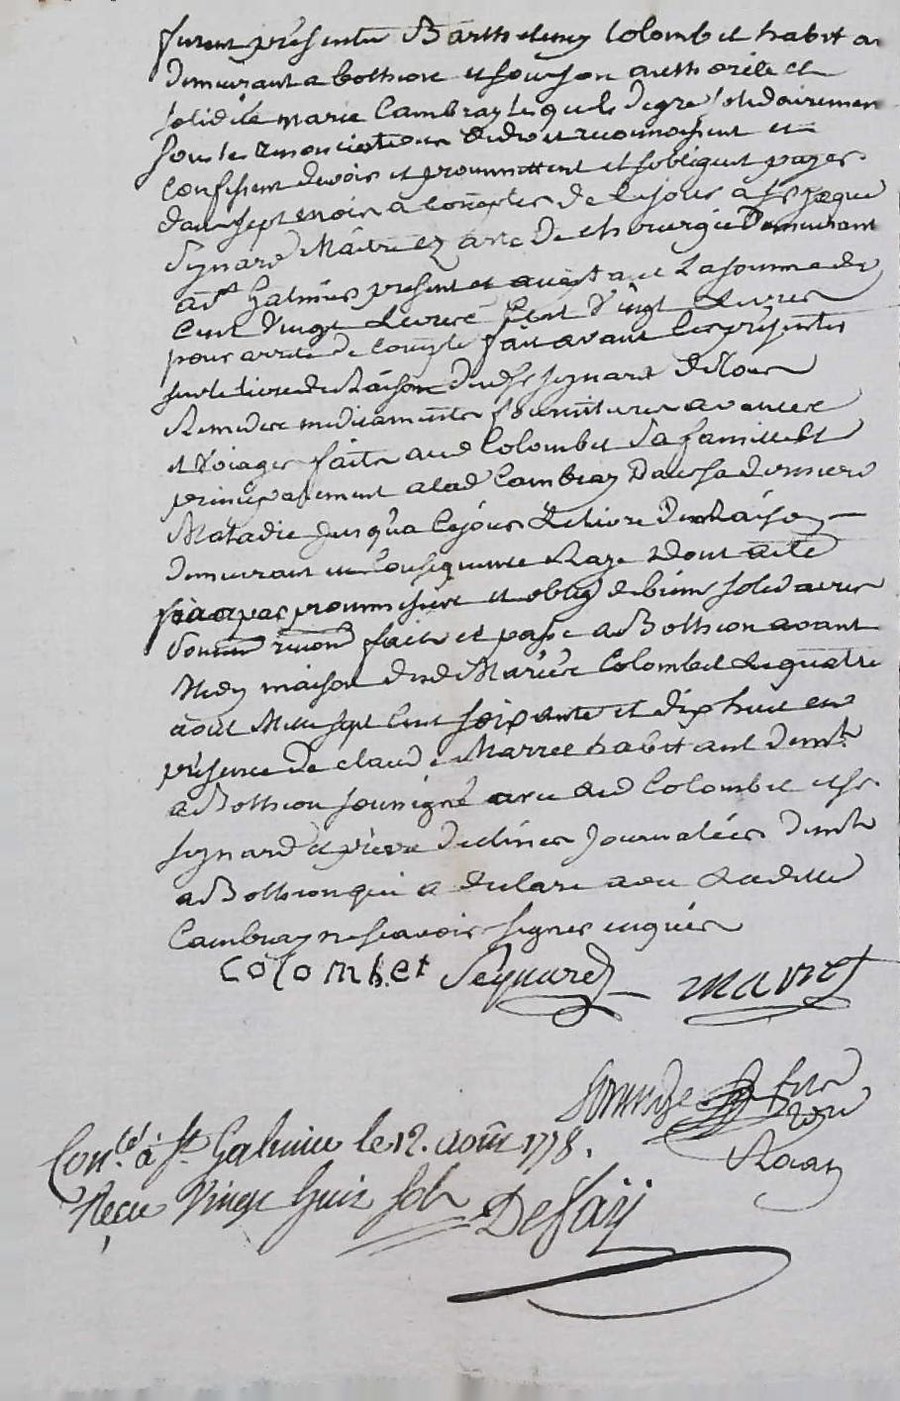 furent présents Barthelemy Colombet habitan
demeurant a bothion et sous son authorité et
solidité marie Cambray lesquels de gre solidairemen
sous les renonciations de droit reconnoissent et
confessent devoir et promettent et sobligent payer
dans sept mois a compter de ce jour a sr
Seynard Maitre ez arts de chirurgie Demeurant
a st Galmier present et acceptant La somme de
Cent vingt Livres Cent vingt Livres
pour arrete de compte fait avant les présentes
sur le livre de Raison dud sr Seynard de tous
Remedes medicaments fournitures avances
et voiages faits aud Colombet Sa famille et
principalement a lad Cambray Dans sa derniere
Maladie jusqua ce jour Le livre De Raison
demeurant en consequence Raye Dont acte
fait par promissions et oblig de biens solidaires
soum renond fait et passé a Bothion avant
Midy maison dud Colombet Le quatre
août Mille sept Cent soixante et dix huit en
présence de claude Marret habitant demt
a Bothion soussigné avec led Colombet et sr
Seynard et pierre journalier demt
a Bothion qui a declaré avec Ladite
Cambray ne scavoir signer enquis
Colombet Seynard marret
Conlé à St Galmier le 12. août 1778.
Reçu Vingt huit sols DeSaÿ